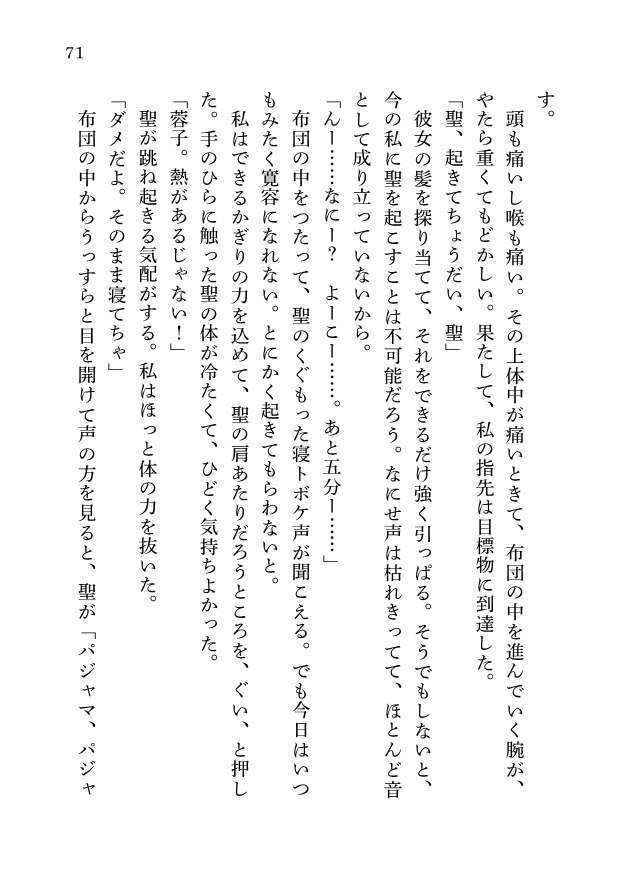 71
す。
　頭も痛いし喉も痛い。その上体中が痛いときて、布団の中を進んでいく腕が、
やたら重くてもどかしい。果たして、私の指先は目標物に到達した。
「聖、起きてちょうだい、聖」
　彼女の髪を探り当てて、それをできるだけ強く引っぱる。そうでもしないと、
今の私に聖を起こすことは不可能だろう。なにせ声は枯れきってて、ほとんど音
として成り立っていないから。
「んー……なにー？　よーこー……。あと五分ー……」
　布団の中をつたって、聖のくぐもった寝トボケ声が聞こえる。でも今日はいつ
もみたく寛容になれない。とにかく起きてもらわないと。
　私はできるかぎりの力を込めて、聖の肩あたりだろうところを、ぐい、と押し
た。手のひらに触った聖の体が冷たくて、ひどく気持ちよかった。
「蓉子。熱があるじゃない！」
　聖が跳ね起きる気配がする。私はほっと体の力を抜いた。
「ダメだよ。そのまま寝てちゃ」
　布団の中からうっすらと目を開けて声の方を見ると、聖が「パジャマ、パジャ